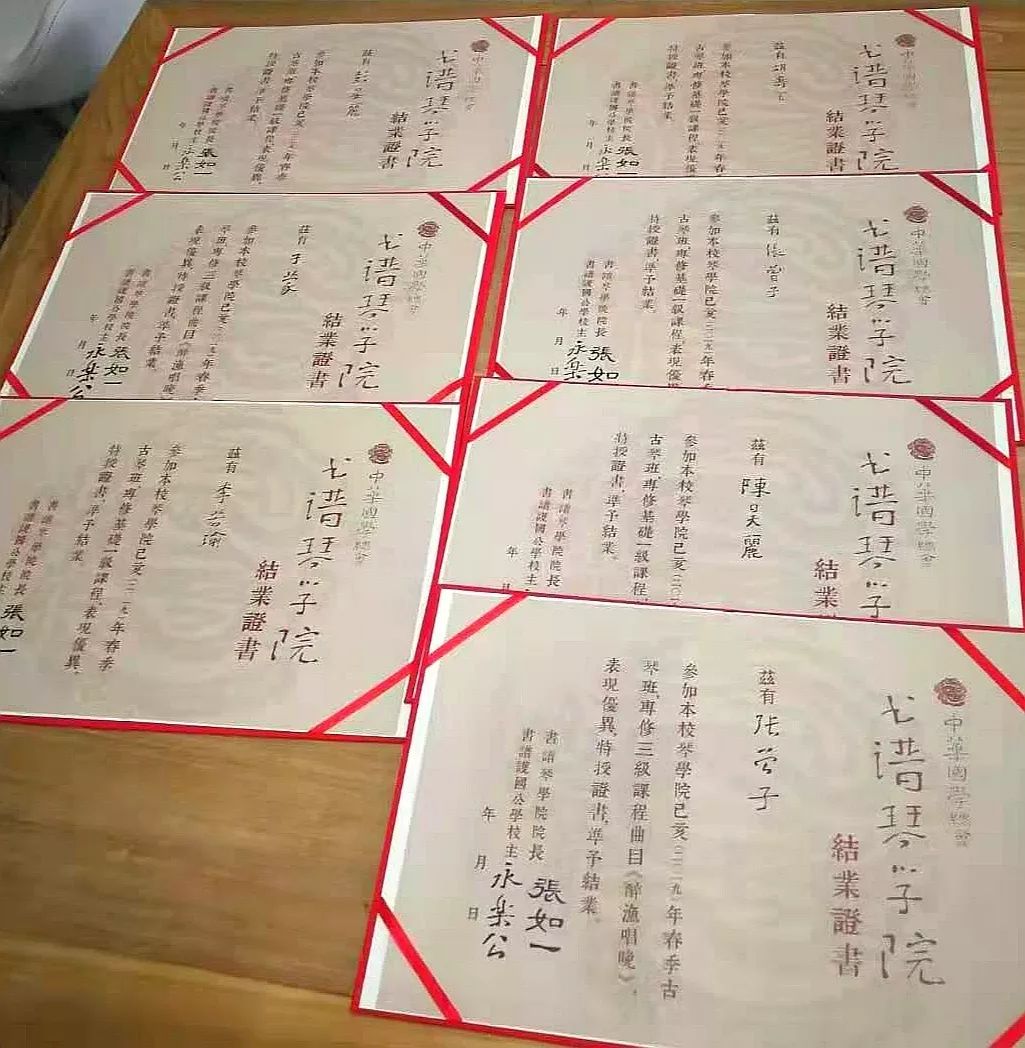 中華國學總會
譜琴學院
結業證書
茲有
參加本校琴學院己亥
年春
古琴班,專修基礎一級課程,表現優異,
特授證書,準予結業。
書譜琴學院院長 張如一
書譜護國公學校主 永樂公
年 月 日
中華國學總會
譜琴學院
結業證書
茲有 胡
參加本校琴學院己亥
年春
古琴班,專修基礎一級課程,表現優
特授證書,準予結業。
書譜琴學院院長 張如一
書譜護國公學校主 永樂公
年 月 日
中華國學總會
譜琴學院
結業證書
茲有 于
參加本校琴學院己亥
年春季
琴班,專修三級課程曲目《醉漁唱晚
表現優異,特授證書,準予結業。
書譜琴學院院長 張如一
書譜護國公學校主 永樂公
年 月
中華國學總會
譜琴學院
結業證書
茲有 張
子
參加本校琴學院己亥
年春
古琴班,專修基礎一級課程,表現優異
特授證書,準予結業。
書譜琴學院院長 張如
書譜護國公學校主 永樂
月 日
中華國學總會
譜琴學院
結業證書
茲有 李
瑜
參加本校琴學院己亥
年春季
古琴班,專修基礎一級課程,表現優異,
特授證書,準予結業
書譜琴學院院長 張如一
書譜護國公學校主
中華國學總會
譜琴學
結業
茲有 陳
麗
參加本校琴學院己亥
古琴班,專修基礎一級課程,
特授證書,準予結業。
書譜琴學院院長
書譜護國公學校主
年 月
中華國學總會
譜琴學院
結業證書
茲有 張
子
參加本校琴學院己亥
年春季古
琴班,專修三級課程曲目《醉漁唱晚》,
表現優異,特授證書,準予結業。
書譜琴學院院長 張如一
書譜護國公學校主 永樂公
年 月 日